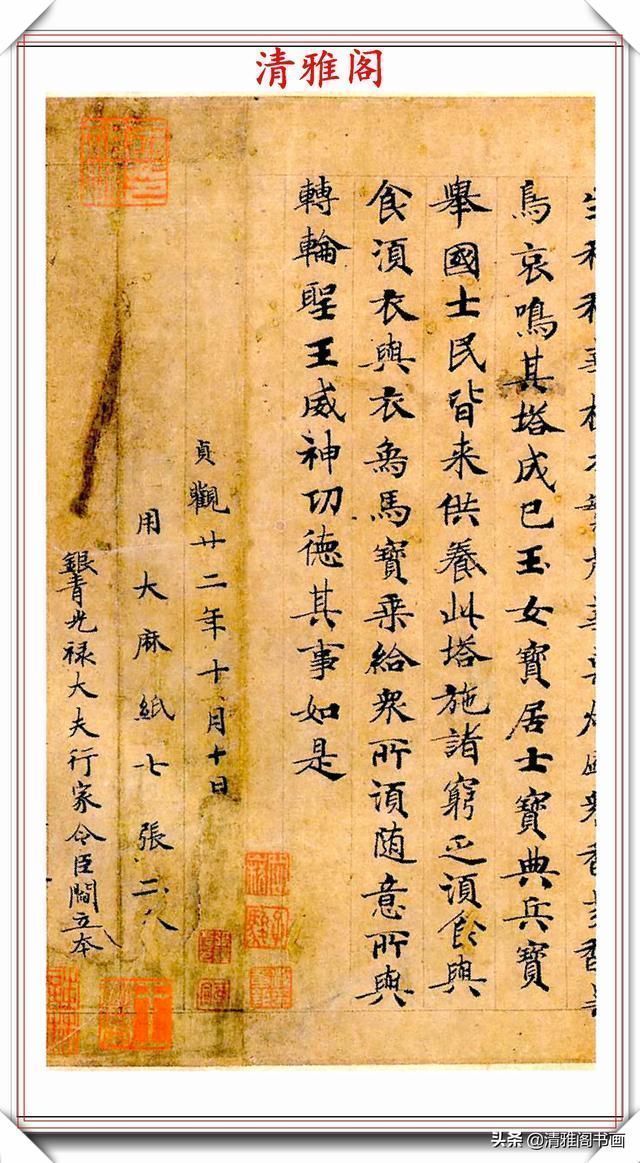 清雅阁
鳥哀鳴其塔成已玉女寶居士寶典兵寶
舉國士民皆来供養此塔施諸窮乏須食與
食須衣與衣象馬寶乘給衆所須随意所與
轉輪聖王威神功德其事如是
貞觀廿二年十月十日
用大麻紙七張二分
銀青光禄大夫行家令臣閻立本
头条 @清雅阁书画